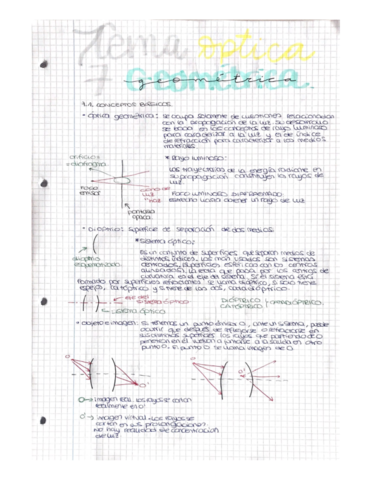 Tema óptica
7 geométrica.
1.1. CONCEPTOS BÁSICOS
• óptica geométrica: se ocupa solamente de cuestiones relacionadas
con la propagación de la luz. Su desarrollo
se basa en los conceptos de rayo luminoso
para caracterizar a la luz y el de índice
de refracción para caracterizar a los medios
* Rayo luminoso:
las trayectorias de la energía radiante en
su propagación constituyen los rayos de
luz
foco
pantalla
óptica
• dioptrio: superficie de separación de dos medios
* sistema óptico:
Es un conjunto de superficies que separan medios de
distintos índices. Los más usados son sistemas
centrados, superficies esféricas con los centros
alineados. La recta que pasa por los centros de
curvatura es el eje del sistema. Si el sistema está
formado por superficies refractantes se llama dióptrico, si solo tiene
espejo, catóptrico y si tiene de las dos, catadióptrico
eje del
sistema óptico
DIÓPTRICO
CATÓPTRICO
CATADIÓPTRICO
sistema óptico
• objeto e imagen: si tenemos un punto 0, ante un sistema, puede
ocurrir que después de reflejarse o refractarse en
las superficies los rayos que partiendo de 0
penetran en el sistema a juntarse a la salida en otro
punto 0', el punto 0' se llama imagen de 0
0' → imagen real. los rayos se cortan
realmente en 0'
0' → imagen virtual. los rayos se
cortan en sus prolongaciones.
No hay realmente concentración
de luz